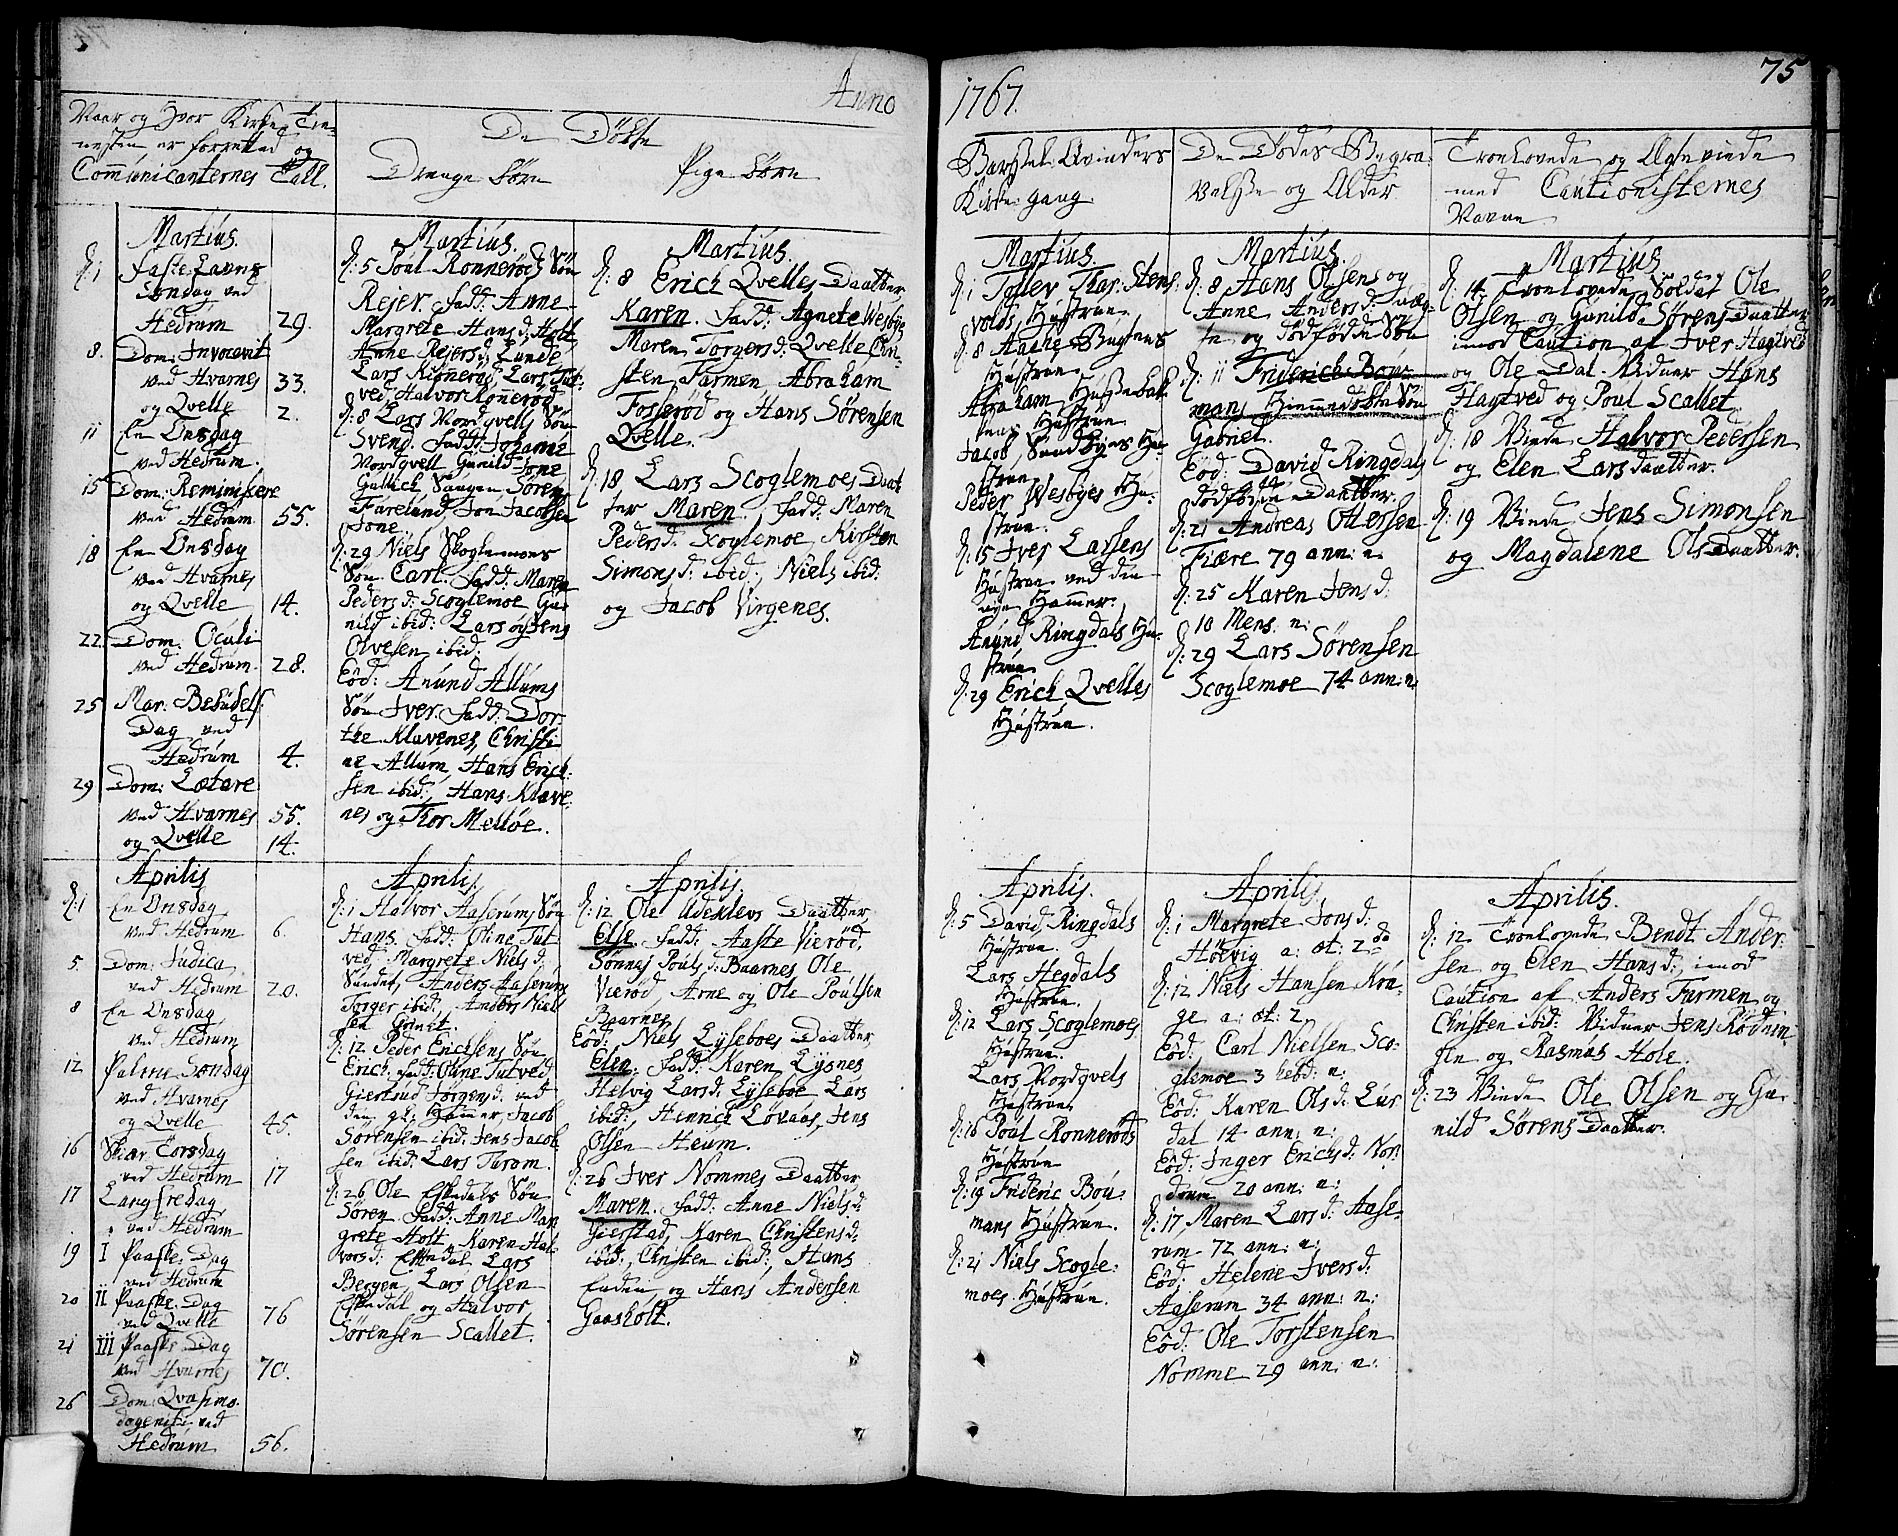 Anno
Naar og Hvor Kirke Tie-
nesten er forretted og
Communicanternes Tall.
De Döbte
Drenge Börn
Pige Börn
Martius.
D: 1 Faste Lavns
Söndag ved
Hedrum 29.
8. Dom: Invocavit
ved Hvarnes 33.
og Qvelle 2.
11 En Onsdag
ved Hedrum.
15 Dom: Reminiscere
ved Hedrum 55.
18 En Onsdag
ved Hvarnes
og Qvelle 14.
22. Dom: Oculi
ved Hedrum. 28.
25 Mar: Besudels:
Dag ved
Hedrum 4.
29 Dom: Lætare
ved Hvarnes 55.
og Qvelle 14.
Aprilis
D: 1 En Onsdag
ved Hedrum 6.
5. Dom: Judica
ved Hedrum 20.
8 En Onsdag
ved Hedrum
12 Palme Söndag
ved Hvarnes
og Qvelle 45.
16 Skiær Torsdag
ved Hedrum 17
17 Langfredag
ved Hedrum
19 I Paaske Dag
ved Hedrum
20 II Paaske Dag
ved Qvelle 76
21 III Paaske Dag
ved Hvarnes 70.
26 Dom: Qvasimo-
dogeniti ved
Hedrum 56.
Martius.
D: 5 Poul Ronneröds Sön
Rejer. Fadd: Anne
Margrete Hans d: Holt
Anne Rejers d: Lunde
Lars Ronneröd, Lars Tut-
ved, Halvor Ronneröd
D: 8 Lars Nordqvells Sön
Svend. Fadd: Johanne
Nordqvell Gunild Tone
Gullich Saugen, Sören
Färelund, Jon Jacobsen
Tone
D: 29 Niels Skoglemoes
Sön Carl. Fadd: Maren
Peders d: Scoglemoe Gu-
nild ibid: Lars og Jens
Olvesen ibid:
Eod: Anund Allums
Sön Iver. Fadd: Dor-
the Klavenes, Christi-
ne Allum, Hans Erich-
sen ibid:, Hans Klave-
nes og Thor Mellöe.
Aprilis
D: 1 Halvor Aaserums Sön
Hans. Fadd: Oline Tut-
ved, Margrete Niels d:
Sundet, Anders Aaserum
Torger ibid:, Anders Niel-
sen Grinet.
D: 12 Peder Erichsens Sön
Erich. Fadd: Oline Tutved
Giertrud Jörgens d: ved
den gl: Hammer, Jacob
Sörensen ibid: Jens Jacob-
sen ibid: Lars Tarom.
D: 26 Ole Eskedals Sön
Sören. Fadd: Anne Mar-
grete Holt, Karen Hal-
vors d: Eskedal, Lars
Bergen, Lars Olsen
Eskedal og Halvor
Sörensen Scallet.
Martius.
D: 8 Erich Qvelles Daatter
Karen. Fadd: Agnete Wesbye
Maren Torgers d: Qvelle Chri-
sten Farmen Abraham
Fosseröd og Hans Sörensen
Qvelle.
D: 18 Lars Scoglemoes Daat-
ter Maren. Fadd: Maren
Peders d: Scoglemoe, Kirsten
Simons d: ibid:, Niels ibid:
og Jacob Virgenes.
Aprilis.
D: 12 Ole Udeklevs Daatter
Else. Fadd: Aaste Vieröd,
Sönnøj Pouls d: Baarnes Ole
Vieröd, Arne og Ole Poulsen
Baarnes
Eod: Niels Lyseboes Daatter
Elen. Fadd: Karen Lysnes
Helvig Lars d: Lyseboe Lars
ibid:, Henrich Lövaas, Jens
Olsen Heum.
D: 26 Iver Nommes Daatter
Maren. Fadd: Anne Niels d:
Gierstad, Karen Christens d:
ibid:, Christen ibid:, Hans
Enden, og Hans Andersen
Gaasholt.
1767.
75
Barsel Qvinders
Kirke gang
De Dödes Begra-
velsse og Alder
Troelovede og Ægteviede
med Cautionisternes
Navne
Martius.
D: 1 Tollev Thor: Stens-
volds Hustrue.
D: 8 Aasse Bugtens
Hustrue.
Abraham Hussebak-
kens Hustrue
Jacob Sundbyes Hu-
strue
Peder Wesbyes Hu-
strue.
D: 15 Iver Larsens
Hustrue ved den
nye Hammer.
Anund Ringdals Hu-
strue
D: 29 Erich Qvelles
Hustrue.
Aprilis.
D: 5 David Ringdals
Hustrue.
Lars Hegdals
Hustrue.
D: 12 Lars Scoglemoes
Hustrue.
Lars Nordqvels
Hustrue
D: 16 Poul Ronneröds
Hustrue
D: 19 Frideric Bou-
mans Hustrue.
D: 21 Niels Scogle-
moes Hustrue.
Martius.
D: 8 Hans Olsens og
Anne Anders d:
og Dödfödde Sön
D: 11 Friderich Bou-
mans Hiemmedöbte Sön
Gabriel.
Eod: David Ringdals
dödfödde Daatter.
D: 21 Andreas Ottersen
Fiære 79 ann: n:
D: 25 Karen Jens d:
10 Mens. n:
D: 29 Lars Sörensen
Scoglemoe 74 ann: n:
Aprilis.
D: 1 Margrete Jons d:
Höevig a: æt: 2do
D: 12 Niels Hansen Kon-
ge a: æt: 2.
Eod: Carl Nielsen Sco-
glemoe 3 hebd: n:
Eod: Karen Ols d: Lur-
dal 14 ann: n:
Eod: Inger Erichs d: Nor-
drum 20 ann: n:
D: 17, Maren Lars d: Aase-
rum 72 ann: n:
Eod: Helene Ivers d:
Aaserum 34 ann: n:
Eod: Ole Torstensen
Nomme 29 ann: n:
Martius.
D: 14 Troelovede Soldat Ole
Olsen og Gunild Sörens Daatter
imod Caution af Iver Hagtved
og Ole Dal. Vidner Hans
Hagtved og Poul Scallet.
D: 18 Viede Halvor Pedersen
og Elen Lars daatter.
D: 19 Viede Jens Simonsen
og Magdalene Ols Daatter.
Aprilis.
D: 12 Troelovede Bendt Ander-
sen og Elen Hans d:, imod
Caution af Anders Farmen og
Christen ibid: Vidner Jens Rödnin-
gen og Rasmus Hole.
D: 23 Viede Ole Olsen og Gu-
nild Sörens Daatter.